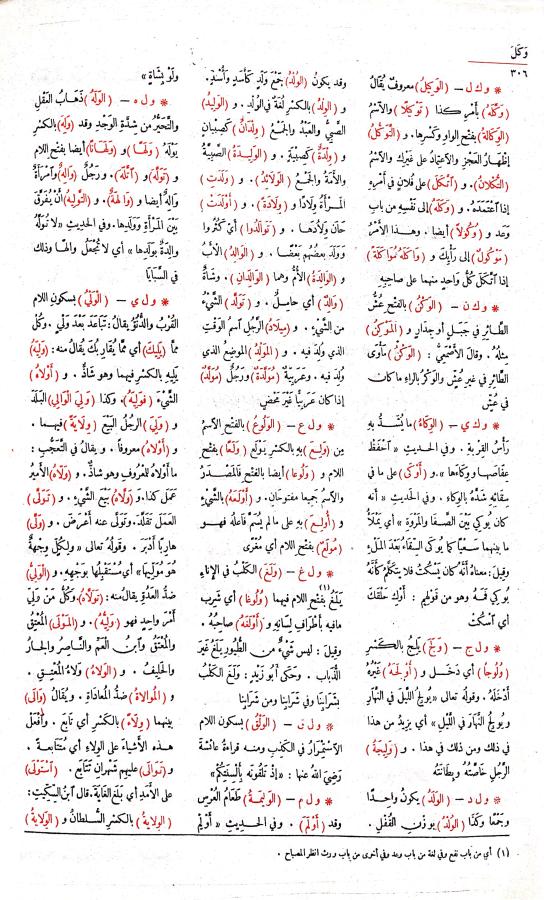 وَكَلَ
٣٠٦
* و ك ل – (الوَكِيلُ) معروفٌ يُقَالُ
(وَكَّلَهُ) بأَمْرِ كذا (تَوْكِيلًا) والآسمُ
(الوَكَالَةُ) بفتح الواو وكَسْرِها . و (التَّوَكُّلُ)
إظْهَارُ العَجْزِ والاعتمادُ على غَيْرِك والآسمُ
(التُّكْلَانُ) . و (آتَّكَلَ) على فُلَانٍ في أَمْرِهِ
إذا اعْتَمَدَهُ . و (وَكَلَهُ) إلى نَفْسِهِ من باب
وَعَد و (وُكُولًا) أيضا . وهــذا الأَمْرُ
(مَوْكُولٌ) إلى رأيِك و (وَاكَلَهُ مُوَاكَلَةً)
إذا اتَّكَلَ كُلُّ واحدٍ منهما على صاحبِهِ
* و ك ن – (الوَكْنُ) بالفتح عُشُّ
الطَّائِرِ في جَبَــلٍ أو جِدَارٍ و (المَوْكِنُ)
مِثْلُهُ . وقالَ الأَصْمَعِيُّ : (الوَكْنُ) مَأْوَى
الطَّائِرِ في غَيرِ عُشٍّ والوَكْرُ بالراء ما كان
في عُشٍّ
* و ك ي – (الوِكَاءُ) ما يُشَــدُّ بِهِ
رَأْسُ القِرْبةِ . وفي الحديثِ «آحْفَظْ
عِفَاصَهَا وَوِكَاءَها» . و (أَوْكَى) على ما في
سِقَائِهِ شَدَّهُ بالوِكاءِ . وفي الحَديثِ «أنه
كان يُوكِي بَيْنَ الصَّفَا والمَرْوَةِ» أي يَمْلَأُ
ما بينهما سَعْيًا كما يُوكَى السِّقَاءُ بعدَ المَلْءِ
وقِيلَ: معناهُ أَنَّهُ كان يَسْكُتُ فلا يَتَكَلَّمُ كأنَّهُ
يُوكِي فَمَهُ وهو من قولِهِمْ : أَوْكِ حَلْقَكَ
أي آسْكُتْ
* و ل ج – (وَلَجَ) يَلِجُ بالكَسْرِ
(وُلُوجًا) أي دَخَــل و (أَوْلَجَهُ) غَيرُهُ
أَدْخَلَهُ . وقولُه تعالى «يُولِجُ اللَّيْلَ في النَّهَارِ
ويُولِجُ النَّهَارَ في اللَّيْلِ» أي يزيدُ من هذا
في ذلك ومن ذلك في هذا . و (وَلِيجَةُ)
الرَّجُلِ خَاصَّتُهُ وبِطَانَتُهُ
* و ل د – (الوَلَدُ) يكونُ واحــدًا
وجَمْعًا وكذا (الوُلْدُ) بوزْنِ القُفْلِ .
وقد يكونُ (الوُلْدُ) جَمْعَ وَلَدٍ كأَسَدٍ وأُسْدٍ .
و (الوِلْدُ) بالكَسْرِ لُغَةٌ في الوُلْدِ . و (الوَلِيدُ)
الصَّبِيُّ والعَبْدُ والجَمْعُ (وِلْدَانٌ) كصِبْيَانٍ
و (وِلْدَةٌ) كَصِبْيَةٍ . و (الوَلِيــدَةُ) الصَّبِيَّةُ
والأَمَةُ والجَمْعُ (الوَلَائِدُ) . و (وَلَدَتِ)
المَــرْأَةُ وِلَادًا و (وِلَادَةً) . و (أَوْلَدَتْ)
حَانَ وِلَادُهَا . و (تَوَالَدُوا) أي كَثُرُوا
وَوَلَدَ بعضُهم بَعْضًا . و (الوَالِدُ) الأَبُ
و (الوَالِدَةُ) الأُمُّ وهما (الوَالِدَانِ) . وشَاةٌ
(وَالِدٌ) أي حامِــلٌ . و (تَوَلَّدَ) الشَّيْءُ
من الشَّيْءِ . و (مِيلَادُ) الرَّجُلِ آسمُ الوَقْتِ
الذي وُلِدَ فيهِ . و (المَوْلِدُ) المَوضِعُ الذي
وُلِدَ فيه . وعَرَبِيَّةٌ (مُوَلَّدَةٌ) ورَجُلٌ (مُوَلَّدٌ)
إذا كان عَرَبِيًّا غَيرَ مَحْضٍ
* و ل ع – (الوَلُوعُ) بالفتح الآسمُ
من (وَلِــعَ) بِهِ بالكسرِ يَوْلَع (وَلَعًا) بفتح
اللام و (وَلُوعا) أيضا بالفتح فالمَصْدَرُ
والآسمُ جميعا مفتوحان . و (أَوْلَعَهُ) بالشَّيْءِ
و (أُولِــعَ) بِهِ على ما لم يُسَمَّ فاعله فهــو
(مُولَعٌ) بفتح اللام أي مُغْرًى
* و ل غ – (وَلَغَ) الكَلْبُ في الإِناءِ
يَلَغُ (١) بفتح اللام فيهما (وُلُوغا) أي شَرِبَ
مافيه بأَطْرافِ لِسَانِه و (أَوْلَغَهُ) صاحِبُهُ .
وقِيلَ : ليس شَيْءٌ مــن الطُّيورِ يَلَغُ غَيرَ
الذُّبَاب . وحَكَى أبو زَيْدٍ : وَلَغَ الكَلْبُ
بِشَرَابِنَا وفي شَرَابِنَا ومن شَرَابِنا
* و ل ق – (الوَلْقُ) بسكون اللام
الاسْتِمْرَارُ في الكَذِبِ ومنــه قراءةُ عائشةَ
رَضِيَ اللهُ عنها : «إذْ تَلِقُونَه بِأَلْسِنَتِكُمْ»
* و ل م – (الوَلِيمَةُ) طَعَامُ العُرْسِ
وقد (أَوْلَمَ) . و في الحديثِ «أَوْلِمْ
ولَوْ بِشَاةٍ»
* و ل ه – (الوَلَهُ) ذَهَابُ العَقْلِ
والتَّحَيُّرُ من شِدَّةِ الوَجْدِ وقد (وَلِهَ) بالكسرِ
يَوْلَهُ (وَلَهًــا) و (وَلَهَانًا) أيضا بفتح اللام
و (تَوَلَّهَ) و (آتَّلَهَ) . ورَجُلٌ (وَالِهٌ) وآمرأةٌ
وَالِهٌ أيضا و (وَالِهَةٌ) . و (التَّوْلِيهُ) أَنْ يُفَرَّقَ
بَيْنَ المَرْأَةِ ووَلَدِها. وفي الحديثِ «لا تُوَلَّهُ
والِدَةٌ بوَلَدِها» أي لا تُجْعَلُ والِهًا وذلك
في السَّبَايَا
* و ل ي – (الوَلْيُ) بسكون اللام
القُرْبُ والدُّنُوُّ يقالُ : تَبَاعَدَ بَعدَ وَلْيٍ . وكُلْ
مِمَّا (يَلِيكَ) أي مِمَّا يُقَارِبُكَ يُقَالُ منه : (وَلِيَهُ)
يَلِيهِ بالكَسْرِ فيهما وهو شَاذٌّ . و (أَوْلَاهُ)
الشَّيْءَ (فَوَلِيَهُ). وكذا (وَلِيَ الوَالِي) البَلَدَ
و (وَلِيَ) الرَّجُلُ البَيْعَ (وِلَايَةً) فيهما .
و (أَوْلَاهُ) معروفاً . و يقال في التَّعَجُّبِ :
ما أَوْلَاهُ للمعروفِ وهو شاذٌّ . و (وَلَّاهُ) الأَمِيرُ
عَمَلَ كذا . و (وَلَّاهُ) بَيْعَ الشَّيْءِ . و (تَوَلَّى)
العَمَلَ تَقَلَّدَ. وتَوَلَّى عنه أَعْرَضَ . و (وَلَّى)
هارِبا أَدْبَرَ . وقولُهُ تعالى «ولِكُلٍّ وِجْهَةٌ
هُوَ مُوَلِّيهَا» أي مُسْتَقْبِلُها بوَجْهِهِ . و (الوَلِيُّ)
ضِدُّ العَدُوِّ يقالُ منه : (تَوَلَّاهُ) . وكُلُّ مَنْ وَلِيَ
أَمْرَ واحِدٍ فهو (وَلِيُّهُ) . و (المَوْلَى) المُعْتِقُ
والمُعْتَقُ وآبنُ العَمِّ والنَّاصِرُ والجارُ
والحَلِيفُ . و (الوَلَاءُ) وَلَاءُ المُعْتِقِ .
و (المُوَالاةُ) ضِدُّ المُعَادَاةِ . و يُقَالُ (وَالَى)
بينهما (وِلَاءً) بالكسرِ أي تَابَعَ . وآفْعَلْ
هــذه الأَشْيَاءَ على الوِلَاءِ أي مُتَتَابِعــةً .
و (تَوَالَى) عليهم شَهْرَانِ تَتَابَعَ . و (آسْتَوْلَى)
على الأَمَدِ أي بَلَغَ الغَايَةَ . قال آبنُ السِّكِّيتِ :
(الوِلَايَةُ) بالكَسْرِ السُّلْطَانُ و (الوَلَايَةُ)
(١) أي من باب نفع وفي لغة من باب وعد وفي أخرى من باب ورث انظر المصباح .